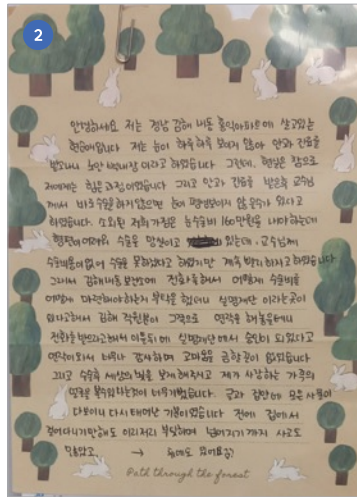 2
안녕하세요 저는 경남 김해 내동 홍익아파트에 살고있는
입니다 저는 눈이 하루하루 보이지 않아 안과 진료를
받으니 노안 백내장 이라고 하였습니다 그런데, 현실은 참으로
저에게는 힘든 과정이었습니다 그리고 안과 진료를 받은후 교수님
께서 바로 수술 하지 않으면 눈이 평생보이지 않을수가 있다고
하였습니다. 소외된 저희 가정은 눈수술비 160만원을 나와 하는데
형편이 어려워 수술을 망설이고 있는데, 교수님께
수술비용이 없어 수술을 못하겠다고 하였지만 계속 빨리 하자고 하였습니다
그래서 김해내동 보건소에 전화를 해서 어떻게 수술비를
어떻게 마련해야하는지 부탁을 했더니 실명재단 이라는곳이
있다고해서 김해 직원분이 그쪽으로 연락을 해놓을테니
전화를 받으라고해서 이틀뒤에 실명재단에서 승인이 되었다고
연락이와서 너무나 감사하며 고마움을 금할 길이 없었습니다
그리고 수술후 세상의 빛을 보게 해주시고 제가 사랑하는 가족의
얼굴을 볼수있다는것이 너무기뻤습니다. 군과 집안에 모든 사물이
다보이니 다시 태어난 기분이었습니다 전에 집에서
걸어다니기만해도 이리저리 부딪히며 넘어지기까지 사고도
있었고. → 뒤에도 있어요:)
Path through the forest